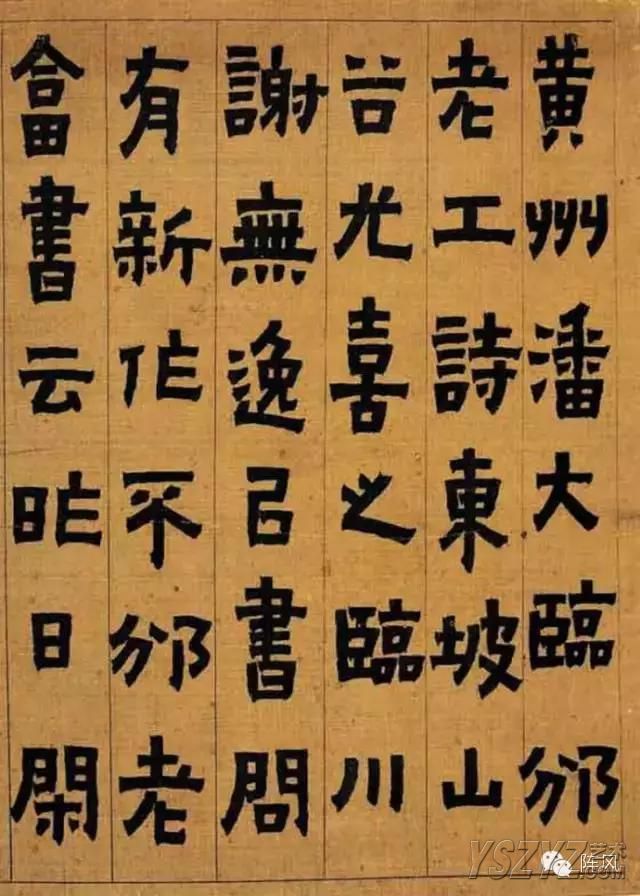 黄州潘大臨邠
老工詩東坡山
谷尤喜之臨川
謝無逸㠯書問
有新作不邠老
畣書云昨日閑
YSZYZ艺术
.COM
阵风